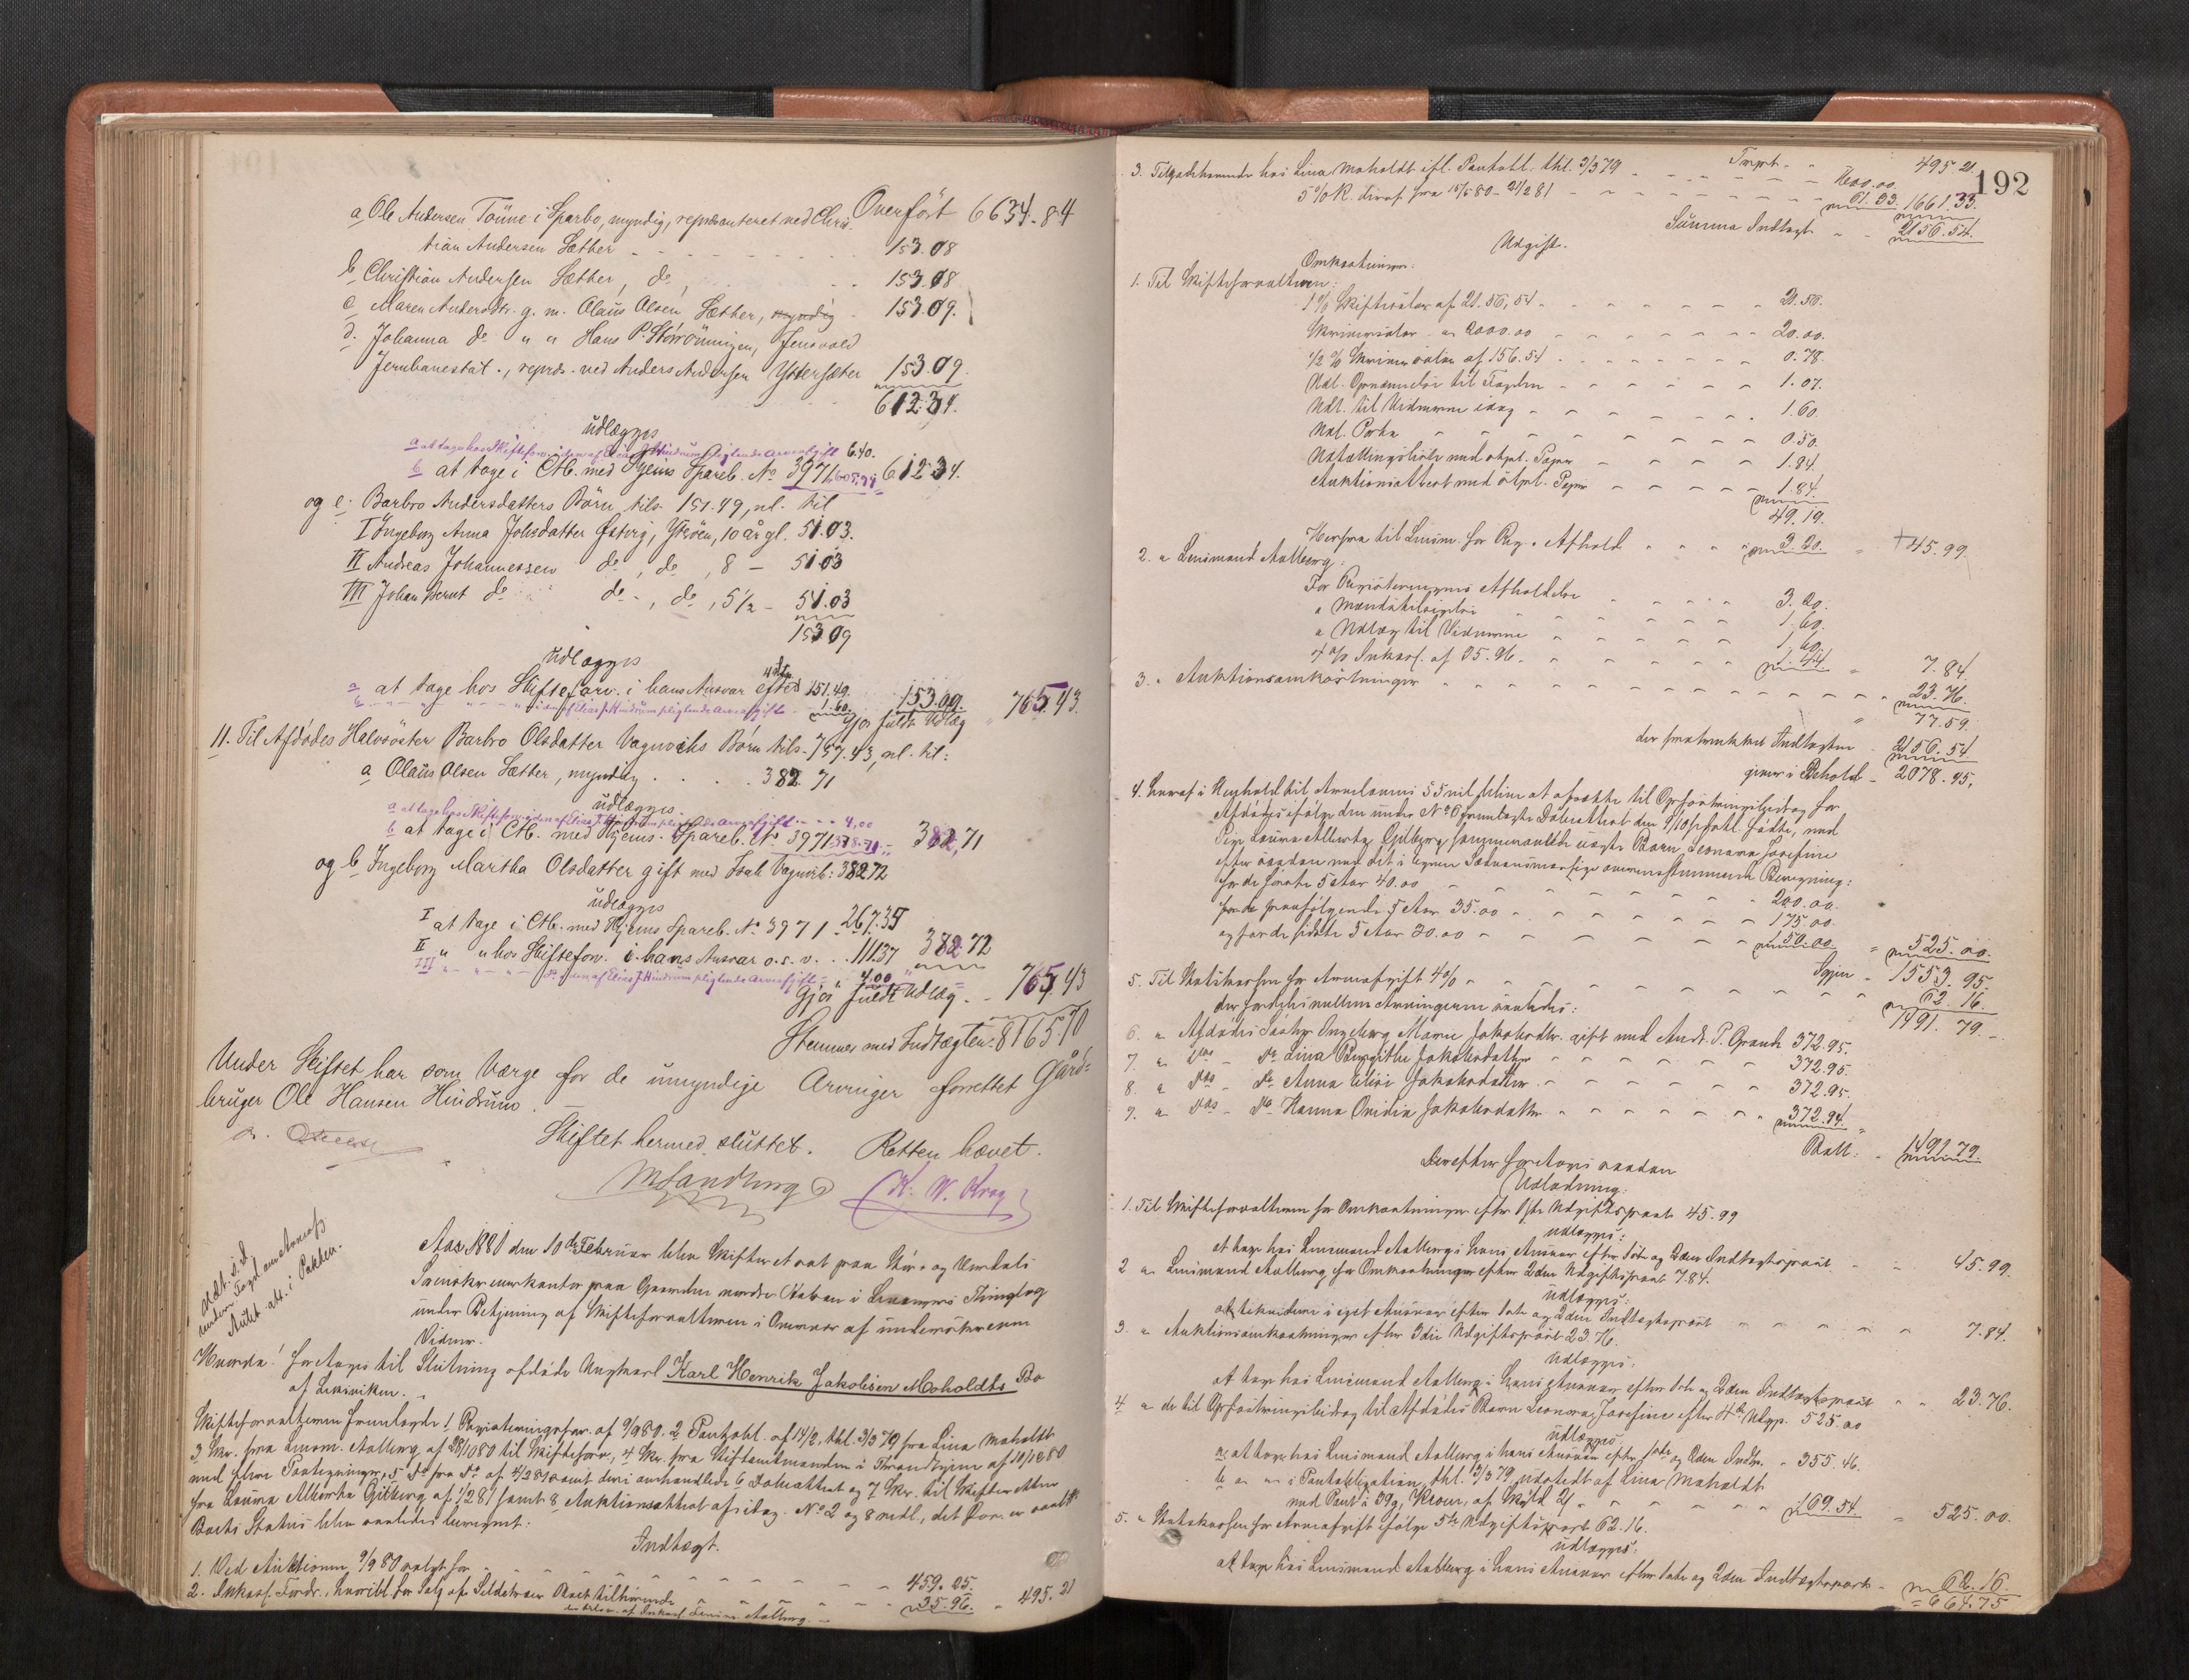 Overført 6634.84
a Ole Andersen Tönne i Sparbo, myndig, repræsenteret ved Chris-
tian Andersen Sæther - - - 153.08
b Christian Andersen Sæther, do, - - 153.08
c Maren Andersdtr. g. m. Olaus Olsen Sæther, myndig - 153.09.
d. Johanna do " " Hans P. Störrönningen, Jensvold
Jernbanestat., repræs. ved Anders Andersen Yttersæter 153.09.
612.34.
udlægges
a at tage hos Skifteforv. iden af Elias J. Hindrum pligtende Arveafgift 6.40.
b at tage i Ctb. med Hjems Spareb. No 3971 605.94 612.34.
og e. Barbro Andersdatters Börn tils. 151.49, nl. til
I Ingeborg Anna Johsdatter Østvig, Ytteröen, 10 år gl. 51.03.
II Andreas Johannessen do, do, 8 - 51.03
III Johan Bernt do do -, do, 5 1/2 - 51.03
153.09
udlægges
a at tage hos Skifteforv. i hans Ansvar efter 151.49.
b - " - " - iden af Elias J. Hindrum pligtende Arveafgift - 1.60. 153.09.
Gjör fuldt Udlæg " 765.43.
11. Til Afdödes Halvsöster Barbro Olsdatter Vagnviks Börn tils. 757.43, nl. til:
a Olaus Olsen Sæther, myndig . . . 382.71
udlægges
a at tage hos Skifteforv. iden af Elias J. Hindrum pligtende Arveafgift - - - 4,00
b at tage i Ctb. med Hjems Spareb. No 3971 378.71 = 382,71
og b Ingeborg Martha Olsdatter gift med Isak Vagnvik: 382.72
udlægges
I at tage i Ctb. med Hjems Spareb. No 3971 - 267.35
II " " hos Skifteforv. i hans Ansvar o.s.v. . . 111.37 382.72
III " - " - " - do. iden af Elias J. Hindrum pligtende Arveafgift - " 4.00 "
Gjör fuldt Udlæg - - 765.43
Stemmer med Indtægten: 8165.70
Under Skiftet har som Værge for de umyndige Arvinger forrettet Gård-
bruger Ole Hansen Hindrum. —
Skiftet hermed sluttet. Retten hævet.
M Sandberg K. W. Krog
Aar 1881 den 10de Februar blev Skifteret sat paa Stör- og Værdals
Sorenskriverkontor paa Gaarden nordre Staben i Leksvigens Thinglag
under Betjening af Skifteforvalteren i Overvær af underskrevne
Vidner.
Hvorda! foretages til Slutning afdöde Ungkarl Karl Henrik Jakobsen Moholdts Bo
af Leksviken. -
Skifteforvalteren fremlagde 1 Registreringsforr. af 9/9 80. 2 Pantobl. af 14/2, thl. 3/3 79 fra Lina Moholdt
3 Skr. fra Lensm. Aalberg af 28/10 80 til Skifteforv., 4 Skr. fra Stiftamtmanden i Throndhjem af
med flere Paategninger, 5 do fra do af 4/2 81 samt deri omhandlede 6 Dåbsattest og 7 Skr. til Skifteretten
fra Laura Alberta Gilberg af 1/2 81 samt 8 Auktionsattest af idag. No. 2 og 8 vedl., det
Boets Status blev saaledes beregnet:
Indtægt.
1. Ved Auktionen 9/9 80 solgt for - - - 459.25.
2. Inkass. Fordr., hævidt for Salg af Boet tilhörende - - 35.96. " 495.21
192
Trspt. - " 495.21
3. Tilgodehavende hos Lina Moholdt ifl. Pantobl. thl. 3/3 79 - - 1600.00.
5 % R. deraf fra 15/5 80 - 21/2 81 - - - 61.33. 1661.33.
Summa Indtægt - - 2156.54.
Udgift.
Omkostninger.
1. Til Skifteforvalteren:
1 % Skiftesalær af 2156,54 - - - 21.56.
Skriversalær " 2000.00 - - - 20.00.
1/2 % Skriversalær af 156.54 - - - 0.78.
Udl. Opnævnelse til Fogden - - - 1.07.
Udl. til Vidnerne idag - - - 1.60.
Udl. Porto - - - 0.50.
Udlodning med stpl. Papir - - 1.84.
Auktionsattest med stpl. Papir - - - 1.84.
49.19.
Herfra til Lensm. for Reg. Afhold " " " 3.20. = 45.99.
2. " Lensmand Aalberg:
For Registreringens Afholdelse - - - 3.20.
" Mændstilsigelse " 1.60.
" Udlæg til Vidnerne " 1.60.
4 % Inkass. af 35.96. - - - 1.44. 7.84.
3. " Auktionsomkostninger - - - 23.76.
77.59.
der fratrukket Indtægten - 2156.54.
giver i Behold - 2078.95.
4. Heraf i Henhold til Arvelovens § 5 vil blive at afsætte til Opfostringsbidrag for
Afdödes ifölge den under No 6 fremlagte Dåbsattest den 9/10 födte, med
Pige Laura Alberta Gilberg sammenavlede uægte Barn, Leonora Josefine
efter saadan med det i lignende overensstemmende Beregning:
for de förste 5 Aar 40.00 - - - 200.00.
for de paafölgende 5 Aar 35.00 - - - 175.00.
og for de sidste 5 Aar 30.00 - - - 50.00. = 525.00.
Igjen - 1553.95.
5. Til Statskassen for Arveafgift 4 % - - - 62.16.
der fordeles mellem Arvingerne saaledes: 1491.79.
6. " Afdödes Söster Ingeborg Marie Jakobsdtr. gift med Andr. P. Grande 372.95.
7. " dos - do Lina Birgithe Jakobsdatter - - - 372.95.
8. " dos - do Anna Elise Jakobsdatter - - - 372.95.
9. " dos - do Hanna Ovidia Jakobsdatter - - - 372.94. =
Ball: - 1491.79.
Derefter foretoges saadan
Udlodning:
1. Til Skifteforvalteren for Omkostninger efter 1ste Udgiftspost 45.99
udlægges:
at tage hos Lensmand Aalberg i hans Ansvar efter 1ste og 2den Indtægtspost - - 45.99.
2 " Lensmand Aalberg for Omkostninger efter 2den Udgiftspost 7.84.
udlægges:
at likvidere i eget Ansvar efter 1ste og 2den Indtægtspost - - - 7.84.
3. " Auktionsomkostninger efter 3die Udgiftspost 23.76.
udlægges:
at tage hos Lensmand Aalberg i hans Ansvar efter 1ste og 2den Indtægtspost " " 23.76.
4 " de til Opfostringsbidrag til Afdödes Barn Leonora Josefine efter 4de Udgp. 525.00
udlægges:
a. at tage hos Lensmand Aalberg i hans Ansvar efter 1ste og 2den Indtp. - 355.46.
b " " i Pantobligation, thl. 3/3 79, udstedt af Lina Moholdt
med Pant i 39g, af Skyld 2 - - - 169.54. = 525.00.
5. " Statskassen for Arveafgift ifölge 5te Udgiftspost 62.16.
udlægges:
at tage hos Lensmand Aalberg i hans Ansvar efter 1ste og 2den Indtægtspost - 62.16.
= 664.75